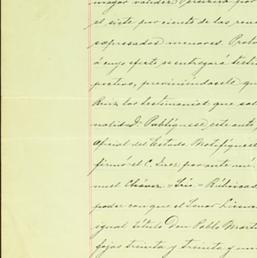 mayor validez
el siete por ciento de las
espresados menores. Proto
á cuyo efecto se entregará testi
previniéndosele que
Ruiz los testimonios que sol
Publíquese este auto
Oficial del Estado. Notifíquese
firmó el C. Juez por ante mí.
Chávez. Srio. Rúbricas
poder con que el Señor Licenc
igual título Don Pablo Mart
fojas treinta y treinta y un